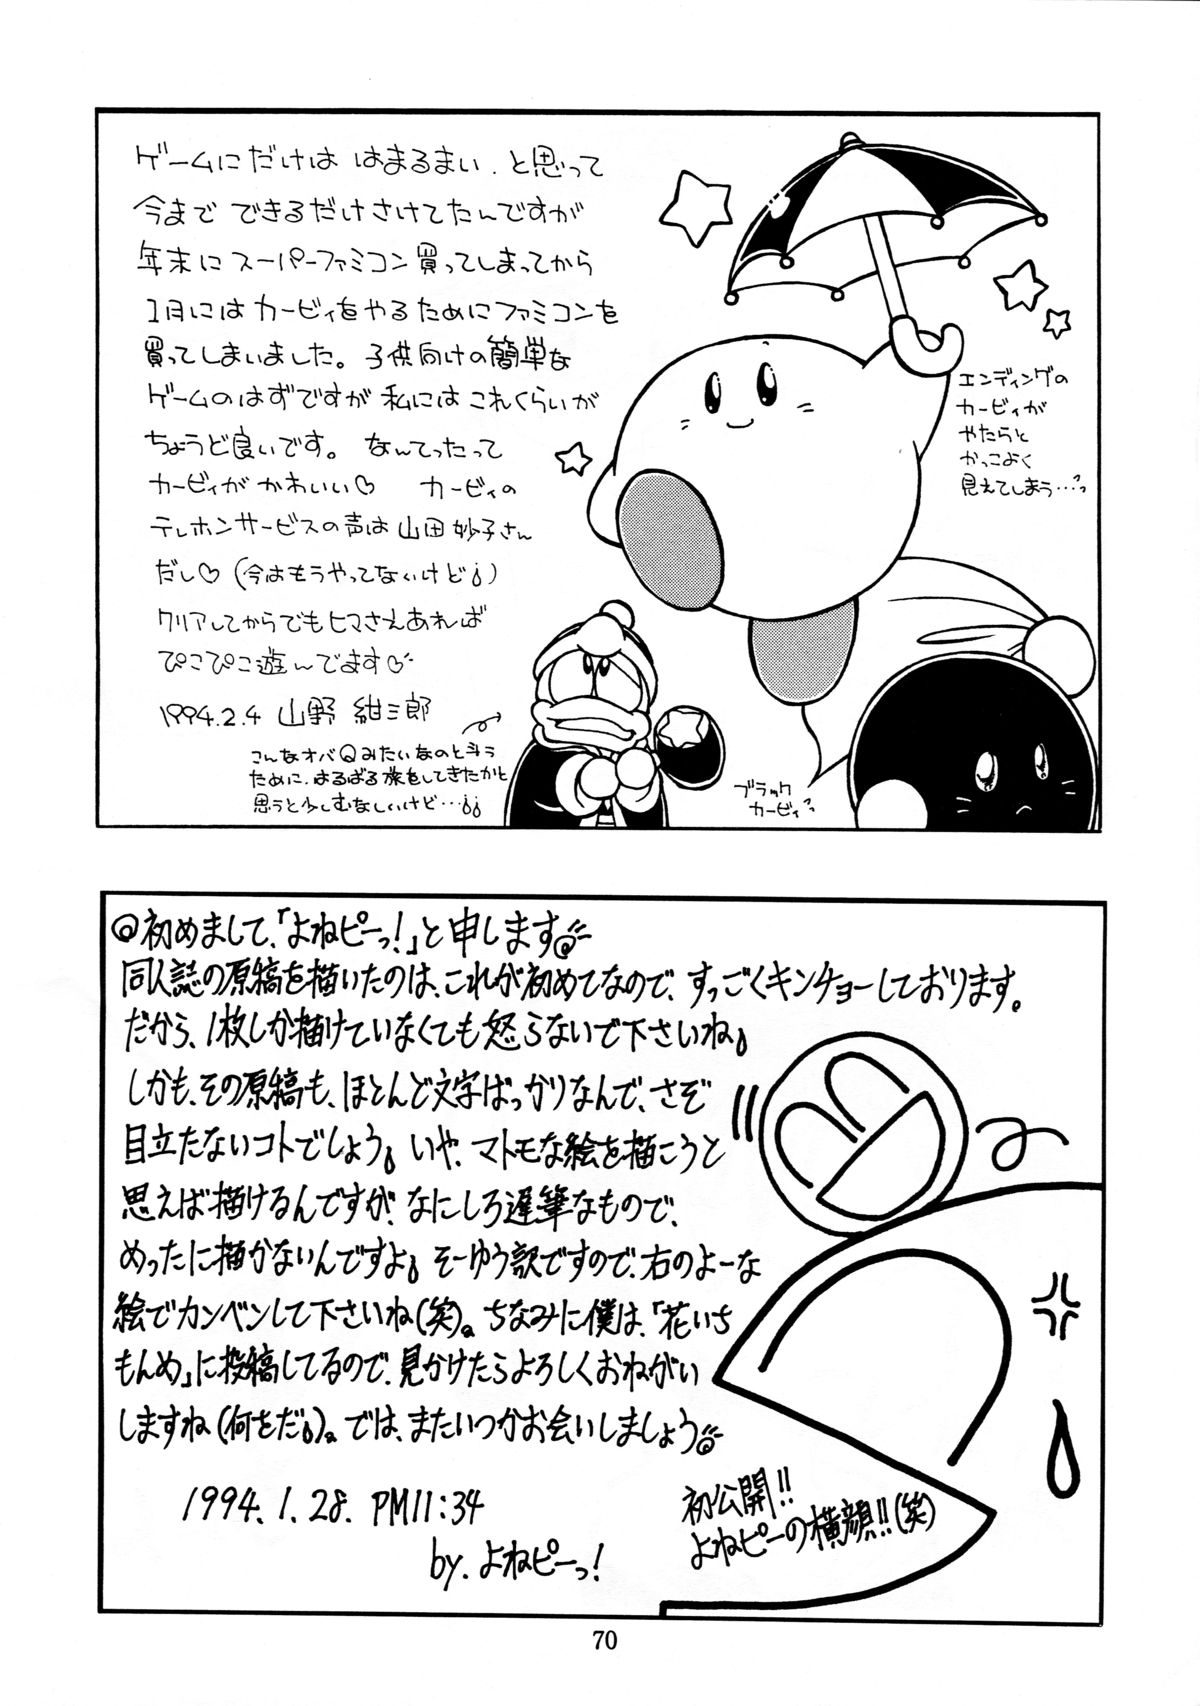 ゲームにだけは はまるまい、と思って
今まで できるだけさけてたんですが
年末に スーパーファミコン 買ってしまってから
1月には カービィをやるために ファミコンを
買ってしまいました。子供向けの簡単な
ゲームのはずですが 私には これくらいが
ちょうど良いです。 なんてったって
カービィが かわいい♡ カービィの
テレホンサービスの声は 山田 妙子さん
だし♡ (今はもうやってないけど)
クリアしてからでもヒマさえあれば
ぴこぴこ遊んでます♡
1994.2.4 山野 紺三郎
こんなオバQみたいなのと斗う
ために、はるばる旅をしてきたかと
思うと少しむなしいけど…
エンディングの
カービィが
やたらと
かっこよく
見えてしまう…っっ
ブラック
カービィっっ
◎初めまして、「よねピーっ!」と申します
同人誌の原稿を描いたのは、これが初めてなので、すっごくキンチョーしております。
だから、1枚しか描けていなくても怒らないで下さいね
しかも、その原稿も、ほとんど文字ばっかりなんで、さぞ
目立たないコトでしょう いや、マトモな絵を描こうと
思えば描けるんですが、なにしろ遅筆なもので、
めったに描かないんですよ そーゆう訳ですので、右のよーな
絵でカンベンして下さいね(笑)。ちなみに僕は、「花いち
もんめ」に投稿してるので、見かけたらよろしくおねがい
しますね(何をだ)。では、またいつかお会いしましょう
1994.1.28. PM11:34
by. よねピーっ!
初公開!!
よねピーの横顔!!(笑)
70